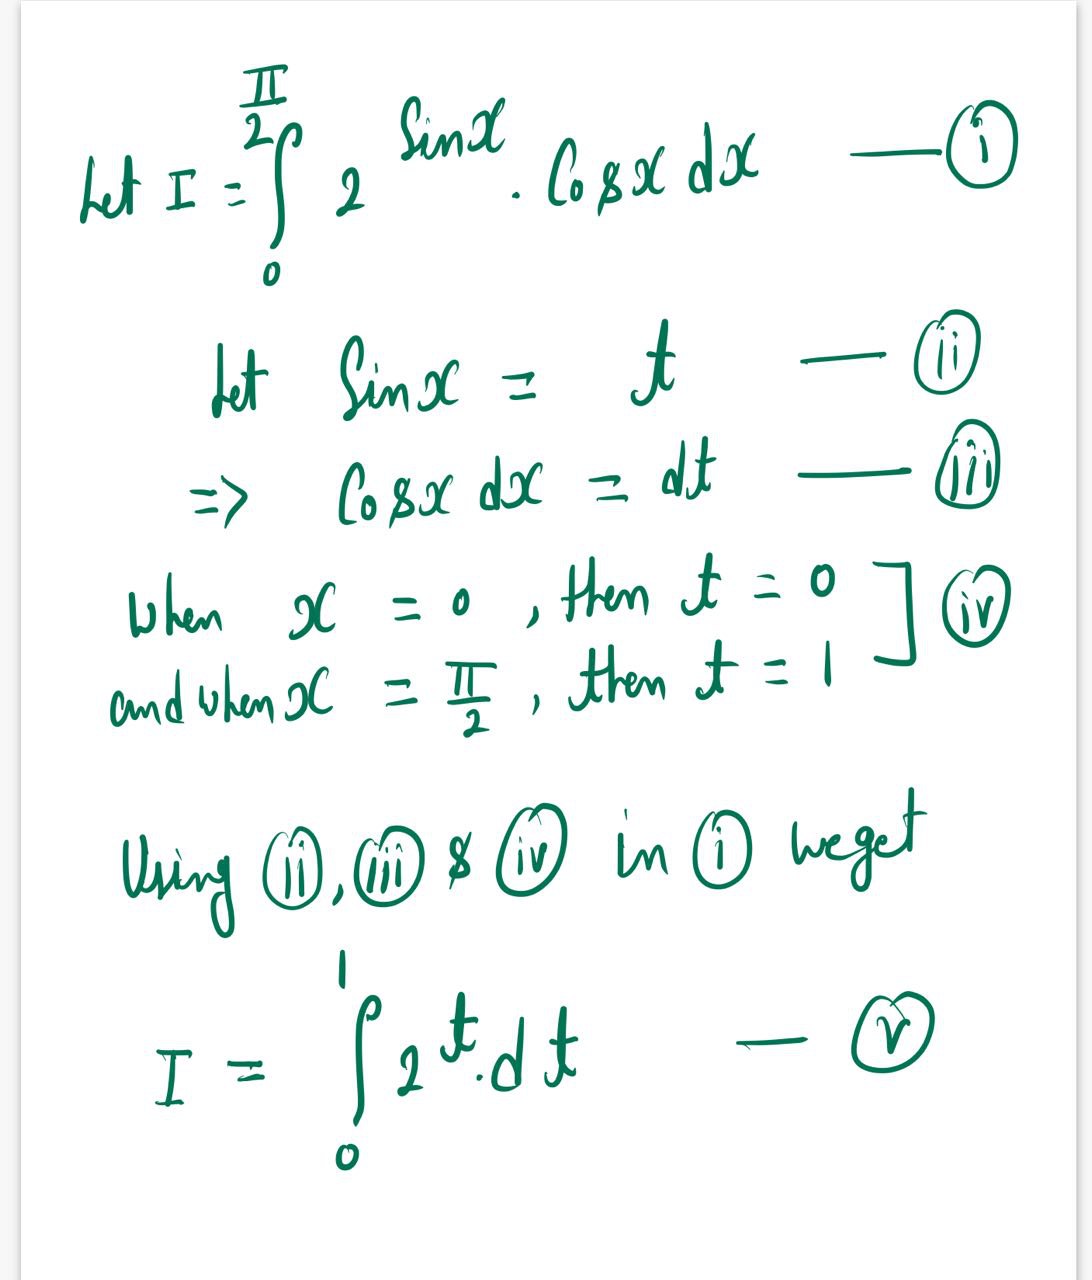 Let I = ∫₀^{π/2} 2^{Sinx} . Cosx dx — (i)
Let Sinx = t — (ii)
=> Cosx dx = dt — (iii)
when x = 0 , then t = 0
and when x = π/2 , then t = 1 ] (iv)
Using (ii), (iii) & (iv) in (i) we get
I = ∫₀^1 2^t . dt — (v)